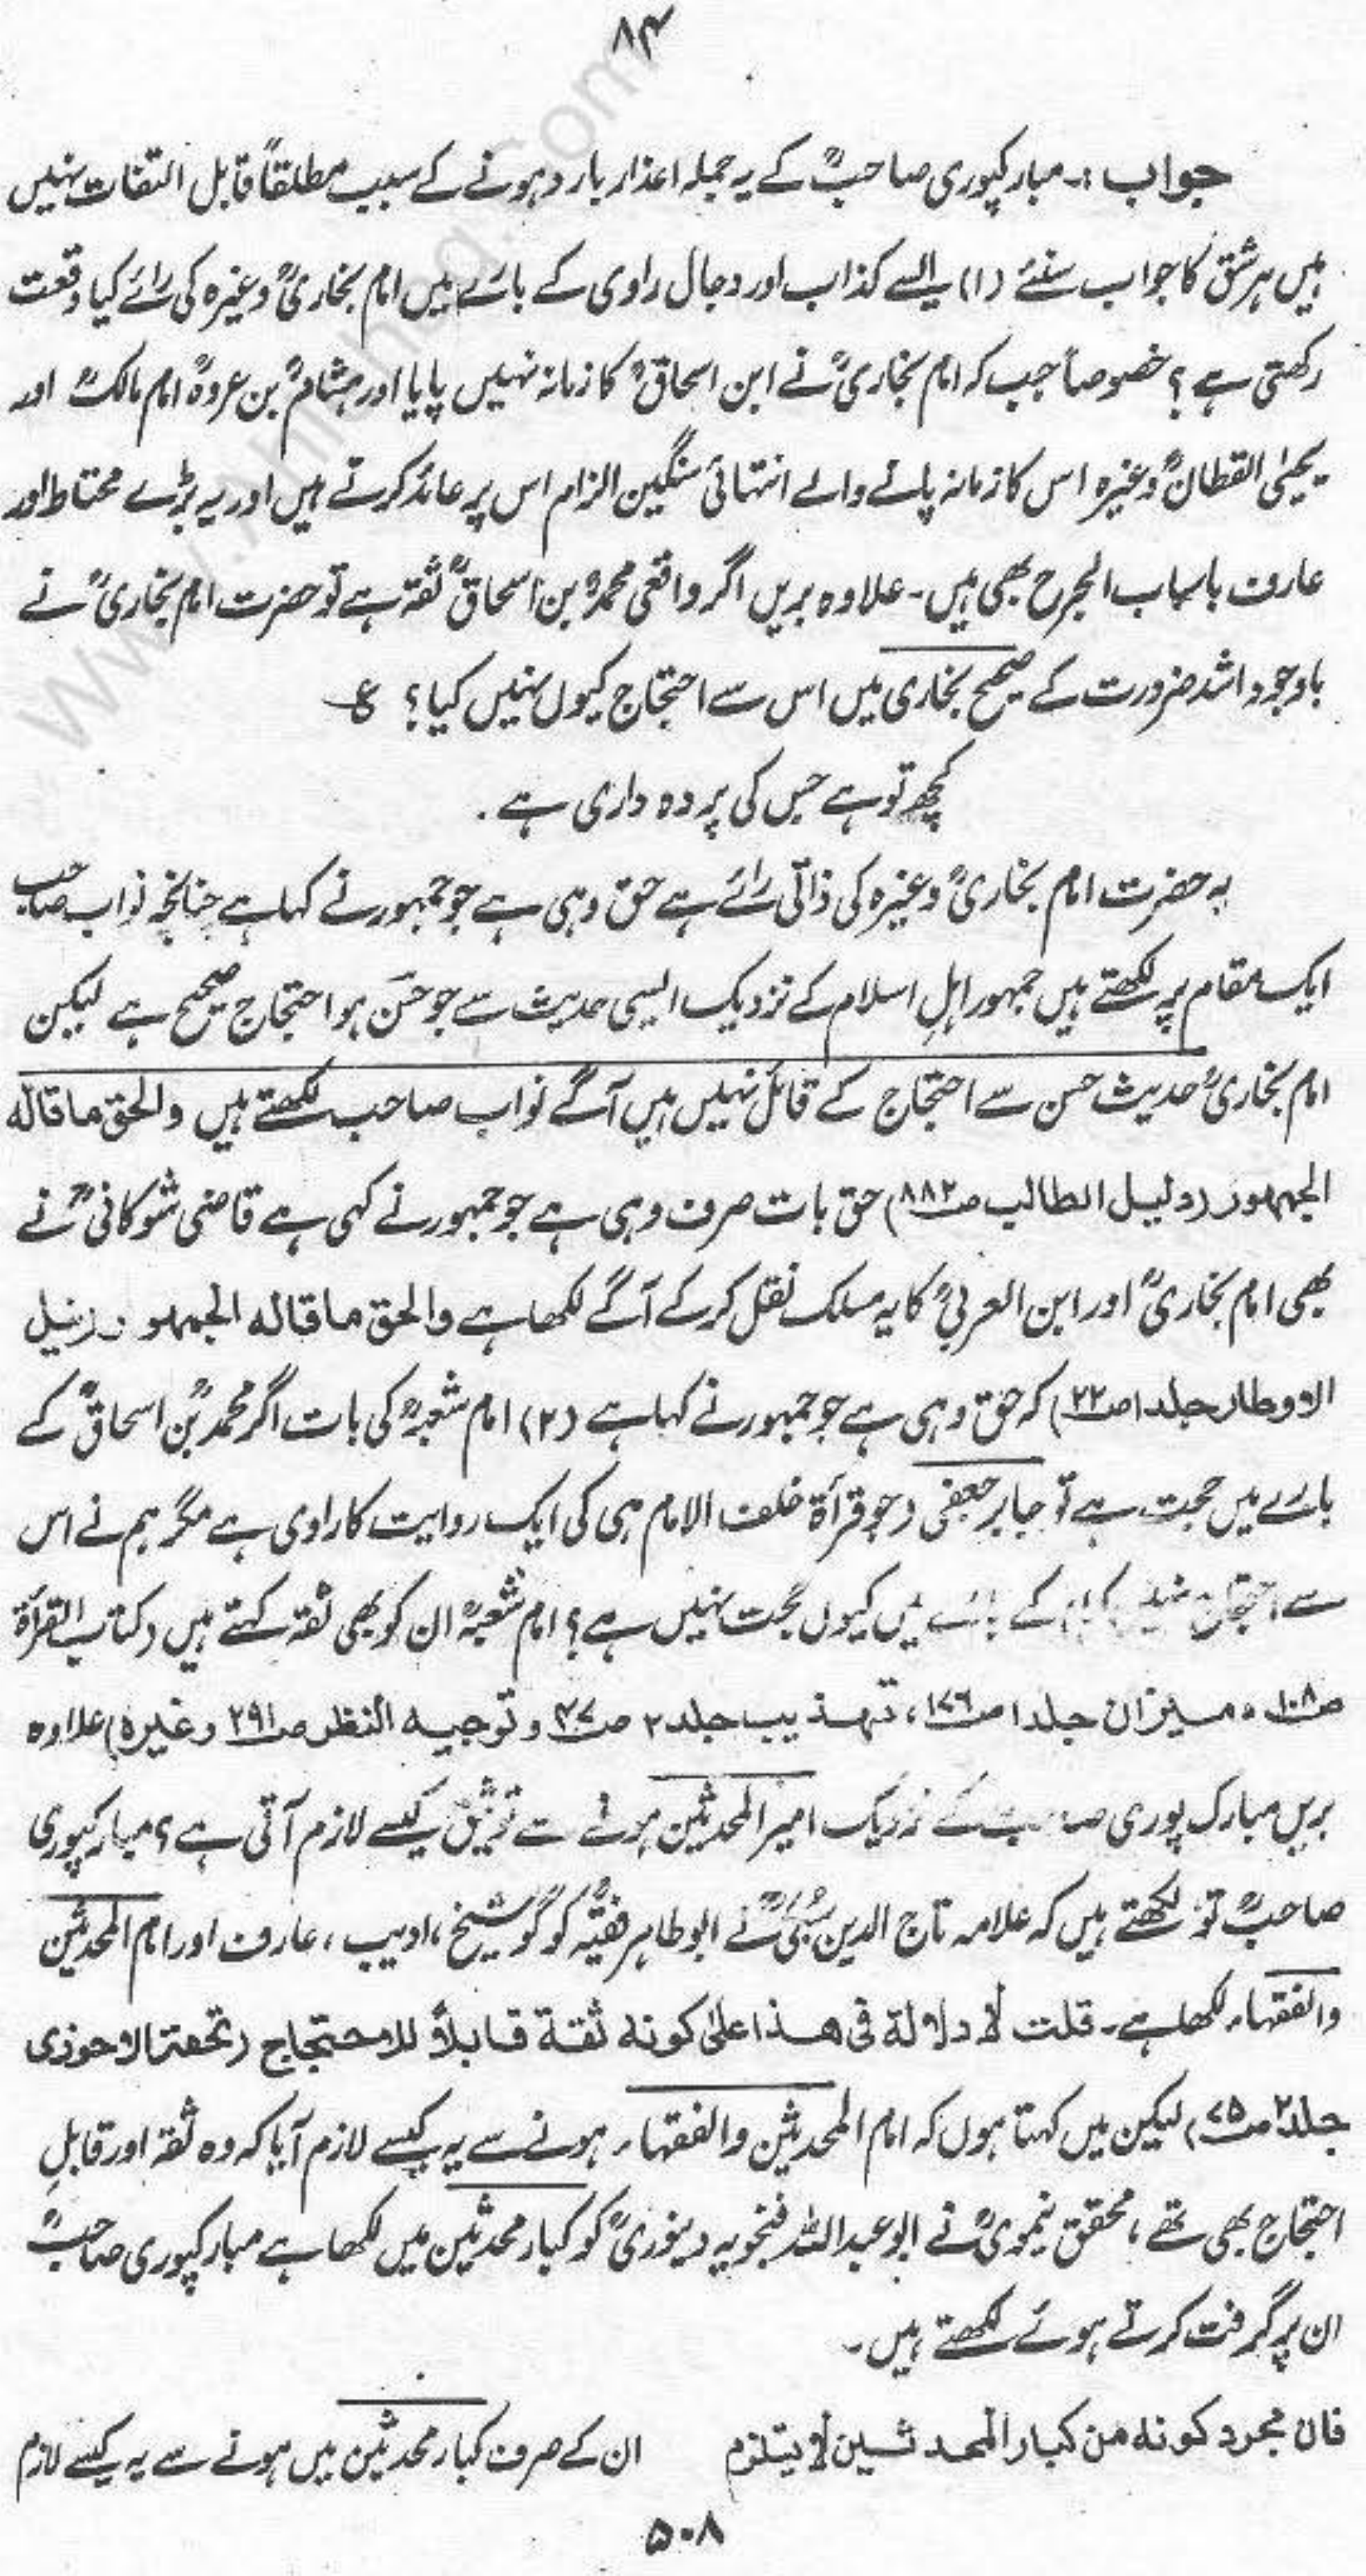 ۸۴
جواب :۔ مبارکپوری صاحبؒ کے یہ جملہ اعذار بارد ہونے کے سبب مطلقاً قابل التفات نہیں
ہیں ہر شق کا جواب سنئے (۱) ایسے کذاب اور دجال راوی کے بارے میں امام بخاریؒ وغیرہ کی رائے کیا وقعت
رکھتی ہے ؟ خصوصاً جب کہ امام بخاریؒ نے ابن اسحاقؒ کا زمانہ نہیں پایا اور ہشامؒ بن عروہؒ امام مالکؒ اور
یحییٰ القطانؒ وغیرہ اس کا زمانہ پانے والے انتہائی سنگین الزام اس پر عائد کرتے ہیں اور یہ بڑے محتاط اور
عارف باسباب الجرح بھی ہیں ۔ علاوہ بریں اگر واقعی محمدؒ بن اسحاقؒ ثقہ ہے تو حضرت امام بخاریؒ نے
باوجود اشد ضرورت کے صحیح بخاری میں اس سے احتجاج کیوں نہیں کیا ؟ ع
کچھ تو ہے جس کی پردہ داری ہے ۔
یہ حضرت امام بخاریؒ وغیرہ کی ذاتی رائے ہے حق وہی ہے جو جمہور نے کہا ہے چنانچہ نواب صاحب
ایک مقام پر لکھتے ہیں جمہور اہلِ اسلام کے نزدیک ایسی حدیث سے جو حَسَن ہو احتجاج صحیح ہے لیکن
امام بخاریؒ حدیث حسن سے احتجاج کے قائل نہیں ہیں آگے نواب صاحب لکھتے ہیں والحق ما قالہ
الجمہور (دلیل الطالب ص۸۸۲) حق بات صرف وہی ہے جو جمہور نے کہی ہے قاضی شوکانیؒ نے
بھی امام بخاریؒ اور ابن العربیؒ کا یہ مسلک نقل کرکے آگے لکھا ہے والحق ما قالہ الجمہور (نیل
الاوطار جلد ۱ ص۲۲) کہ حق وہی ہے جو جمہور نے کہا ہے (۲) امام شعبہؒ کی بات اگر محمدؒ بن اسحاقؒ کے
بارے میں حجت ہے تو جابر جعفی (جو قرأۃ خلف الامام ہی کی ایک روایت کا راوی ہے مگر ہم نے اس
سے احتجاج نہیں کیا) کے بارے میں کیوں حجت نہیں ہے ؟ امام شعبہؒ ان کو بھی ثقہ کہتے ہیں (کتاب القرأۃ
ص۱۰۸، میزان جلد ۱ ص۱۷۶، تہذیب جلد ۲ ص۴۷ و توجیہ النظر ص۲۹۱ وغیرہ) علاوہ
بریں مبارک پوری صاحب کے نزدیک امیر المحدثین ہونے سے توثیق کیسے لازم آتی ہے ؟ مبارکپوری
صاحبؒ تو لکھتے ہیں کہ علامہ تاج الدین سبکیؒ نے ابو طاہر فقیہؒ کو گو شیخ ، ادیب ، عارف اور امام المحدثین
والفقہاء لکھا ہے ۔ قلت لا دلالة فی هذا علیٰ کونه ثقة قابلاً للاحتجاج (تحفۃ الاحوذی
جلد ۲ ص۷۵) لیکن میں کہتا ہوں کہ امام المحدثین والفقہاء ہونے سے یہ کیسے لازم آیا کہ وہ ثقہ اور قابلِ
احتجاج بھی تھے ، محقق نیمویؒ نے ابو عبداللہ فنجویہ دینوریؒ کو کبار محدثین میں لکھا ہے مبارکپوری صاحبؒ
ان پر گرفت کرتے ہوئے لکھتے ہیں ۔
فان مجرد کونه من کبار المحدثین لا یتلزم ان کے صرف کبار محدثین میں ہونے سے یہ کیسے لازم
۵۰۸